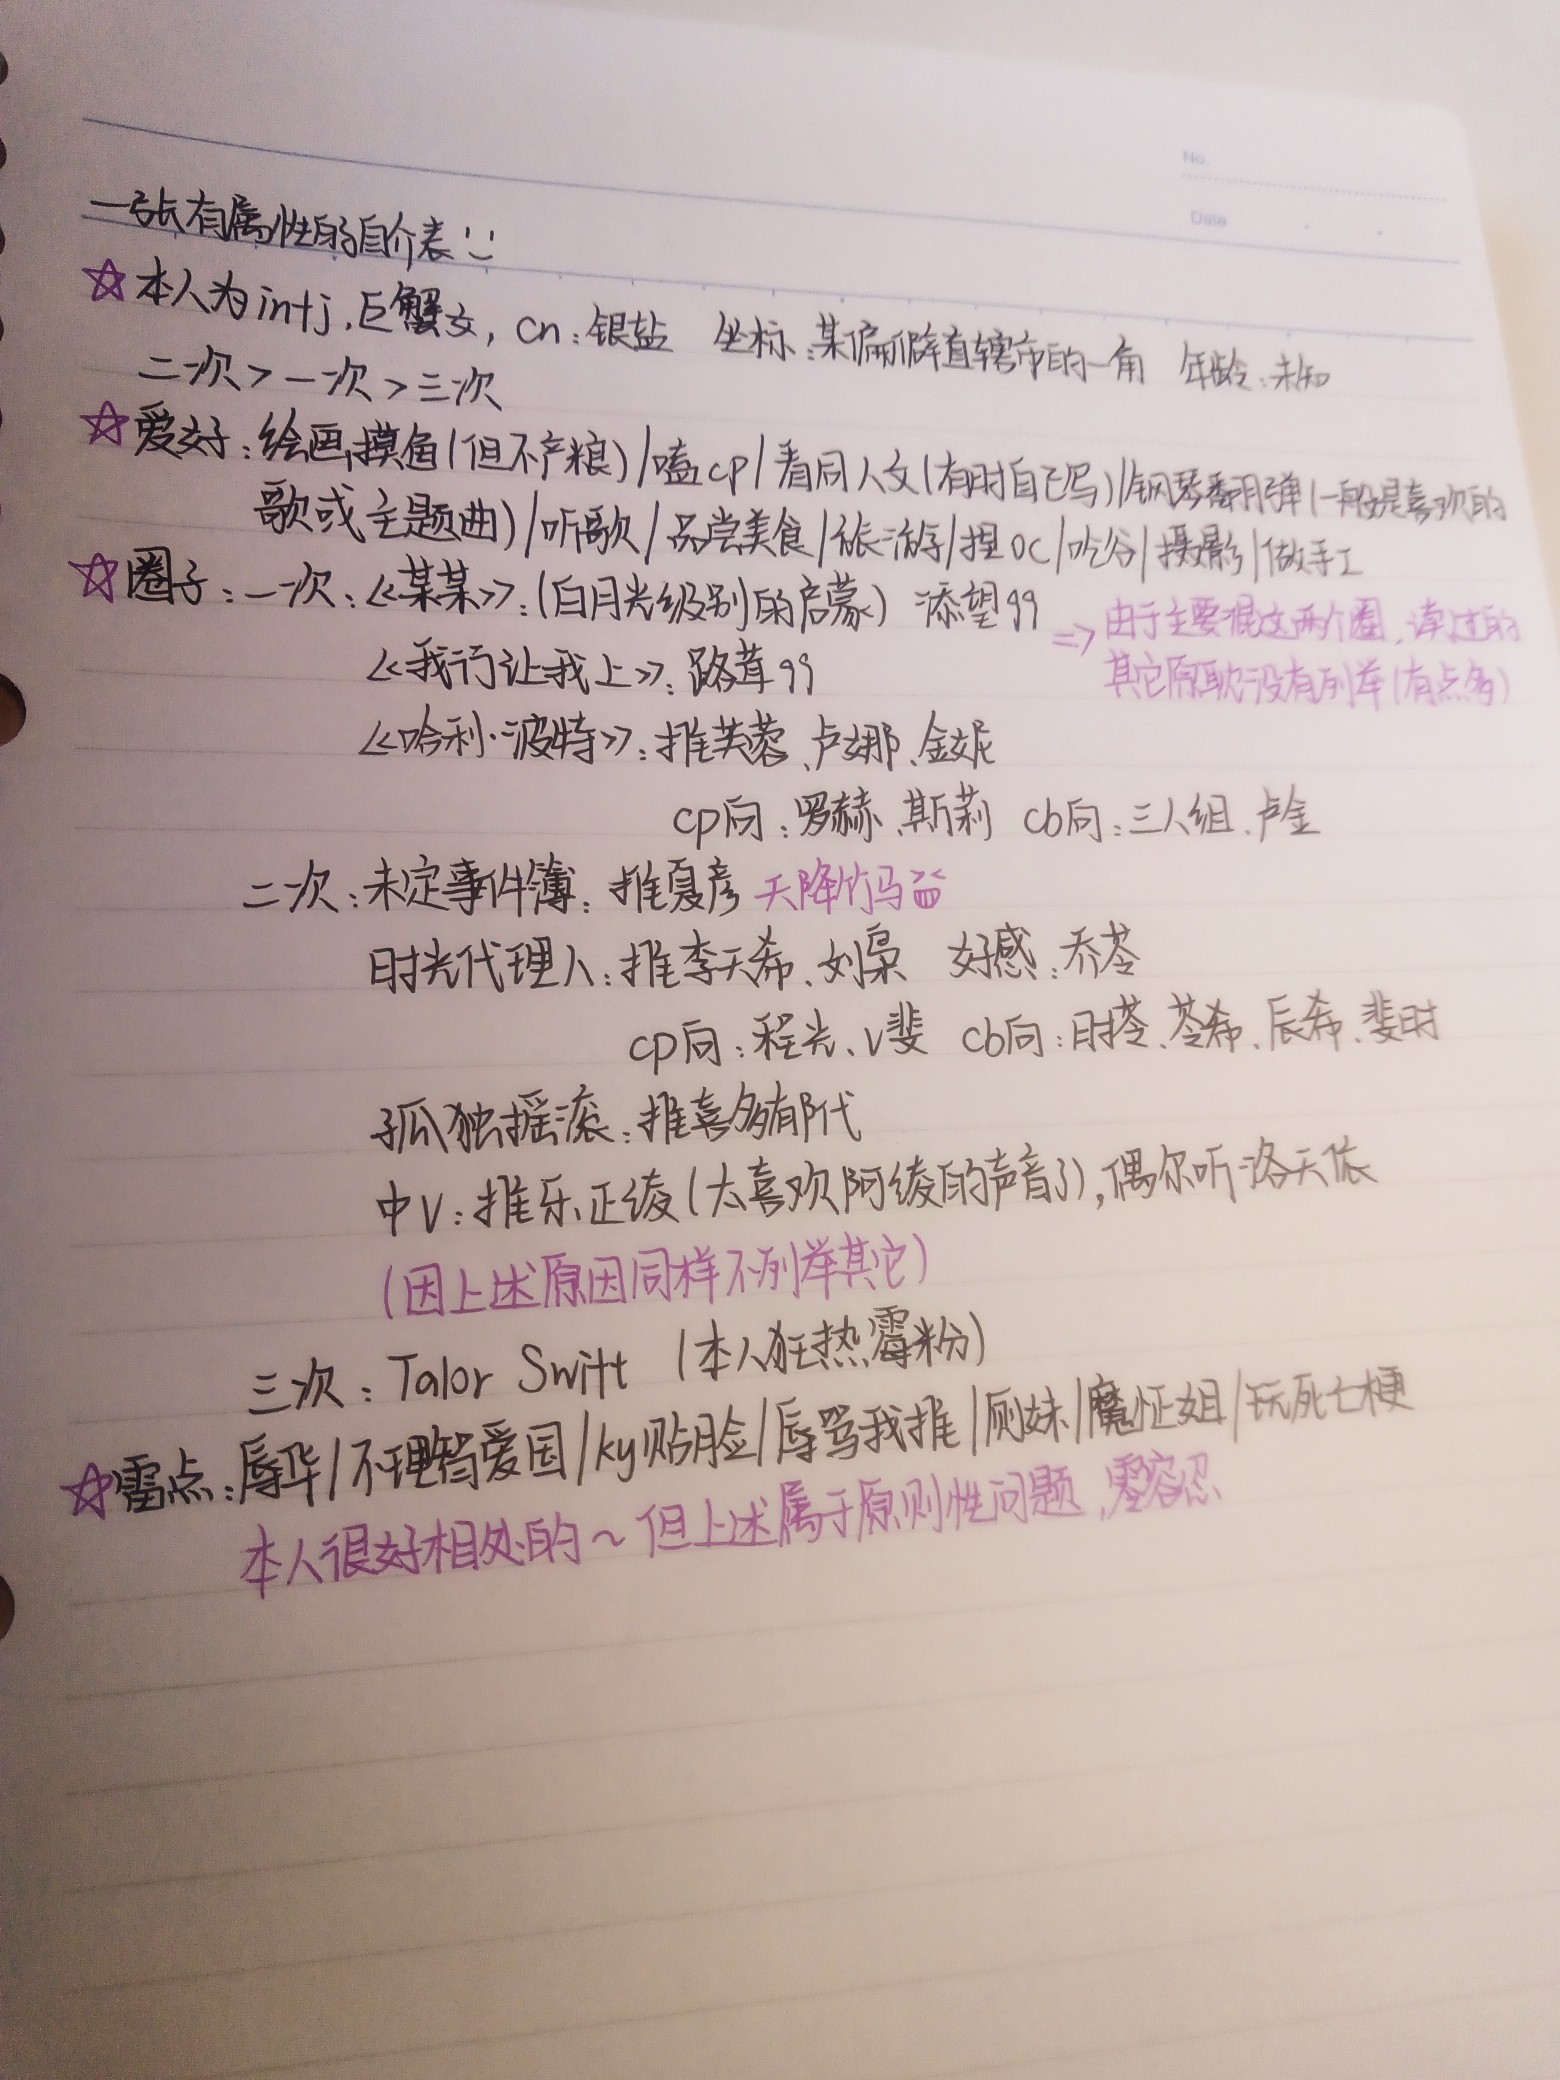 No.
Date
一张有属性的自介表:)
☆本人为intj,巨蟹女,cn:银盐 坐标:某偏僻直辖市的一角 年龄:未知
二次>一次>三次
☆爱好:绘画摸鱼(但不产粮)/嗑cp/看同人文(有时自己写)/钢琴翻弹(一般是喜欢的
歌或主题曲)/听歌/品尝美食/旅游/捏oc/吃谷/摄影/做手工
☆圈子:一次:《某某》:(白月光级别的启蒙) 添望99
=>由于主要混这两个圈,读过的
《我行让我上》:路茸99
其它原耽没有列举(有点多)
《哈利·波特》:推芙蓉、卢娜、金妮
cp向:罗赫、斯莉 cb向:三人组、卢金
二次:未定事件簿:推夏彦 天降竹马
时光代理人:推李天希、刘枭 好感:乔苓
cp向:程光、v斐 cb向:时苓、苓希、辰希、斐时
孤独摇滚:推喜多郁代
中V:推乐正绫(太喜欢阿绫的声音了),偶尔听洛天依
(因上述原因同样不列举其它)
三次:Talor Swift (本人狂热霉粉)
☆雷点:辱华/不理智爱国/ky贴脸/辱骂我推/厕妹/魔怔姐/玩死亡梗
本人很好相处的~但上述属于原则性问题,零容忍